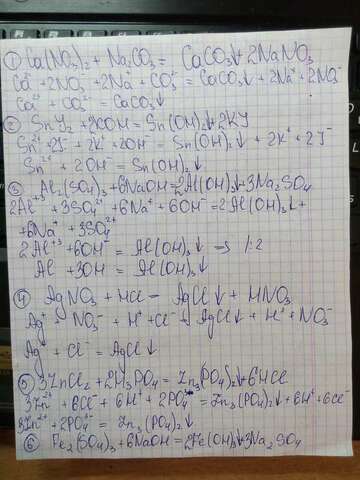 ① Ca(NO₃)₂ + Na₂CO₃ = CaCO₃↓ + 2NaNO₃
Ca²⁺ + 2NO₃⁻ + 2Na⁺ + CO₃²⁻ = CaCO₃↓ + 2Na⁺ + 2NO₃⁻
Ca²⁺ + CO₃²⁻ = CaCO₃↓
② SnJ₂ + 2KOH = Sn(OH)₂↓ + 2KJ
Sn²⁺ + 2J⁻ + 2K⁺ + 2OH⁻ = Sn(OH)₂↓ + 2K⁺ + 2J⁻
Sn²⁺ + 2OH⁻ = Sn(OH)₂↓
③ Al₂(SO₄)₃ + 6NaOH = 2Al(OH)₃↓ + 3Na₂SO₄
2Al⁺³ + 3SO₄²⁻ + 6Na⁺ + 6OH⁻ = 2Al(OH)₃↓ +
+ 6Na⁺ + 3SO₄²⁻
2Al⁺³ + 6OH⁻ = Al(OH)₃↓ → 1:2
Al + 3OH = Al(OH)₃↓
④ AgNO₃ + HCl = AgCl↓ + HNO₃
Ag⁺ + NO₃⁻ + H⁺ + Cl⁻ = AgCl↓ + H⁺ + NO₃⁻
Ag⁺ + Cl⁻ = AgCl↓
⑤ 3ZnCl₂ + 2H₃PO₄ = Zn₃(PO₄)₂↓ + 6HCl
3Zn²⁺ + 6Cl⁻ + 6H⁺ + 2PO₄³⁻ = Zn₃(PO₄)₂↓ + 6H⁺ + 6Cl⁻
3Zn²⁺ + 2PO₄³⁻ = Zn₃(PO₄)₂↓
⑥ Fe₂(SO₄)₃ + 6NaOH = 2Fe(OH)₃↓ + 3Na₂SO₄